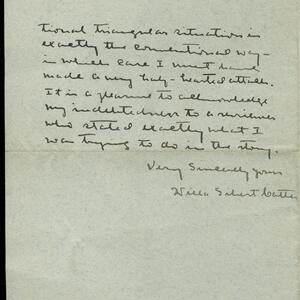 tional triangular situation in
exactly the conventional way -
in which case I must have
made a very half-hearted attack.
It is a pleasure to acknowledge
my indebtedness to a reviewer
who stated exactly what I
was trying to do in the story.
Very Sincerely yours
Willa Sibert Cather